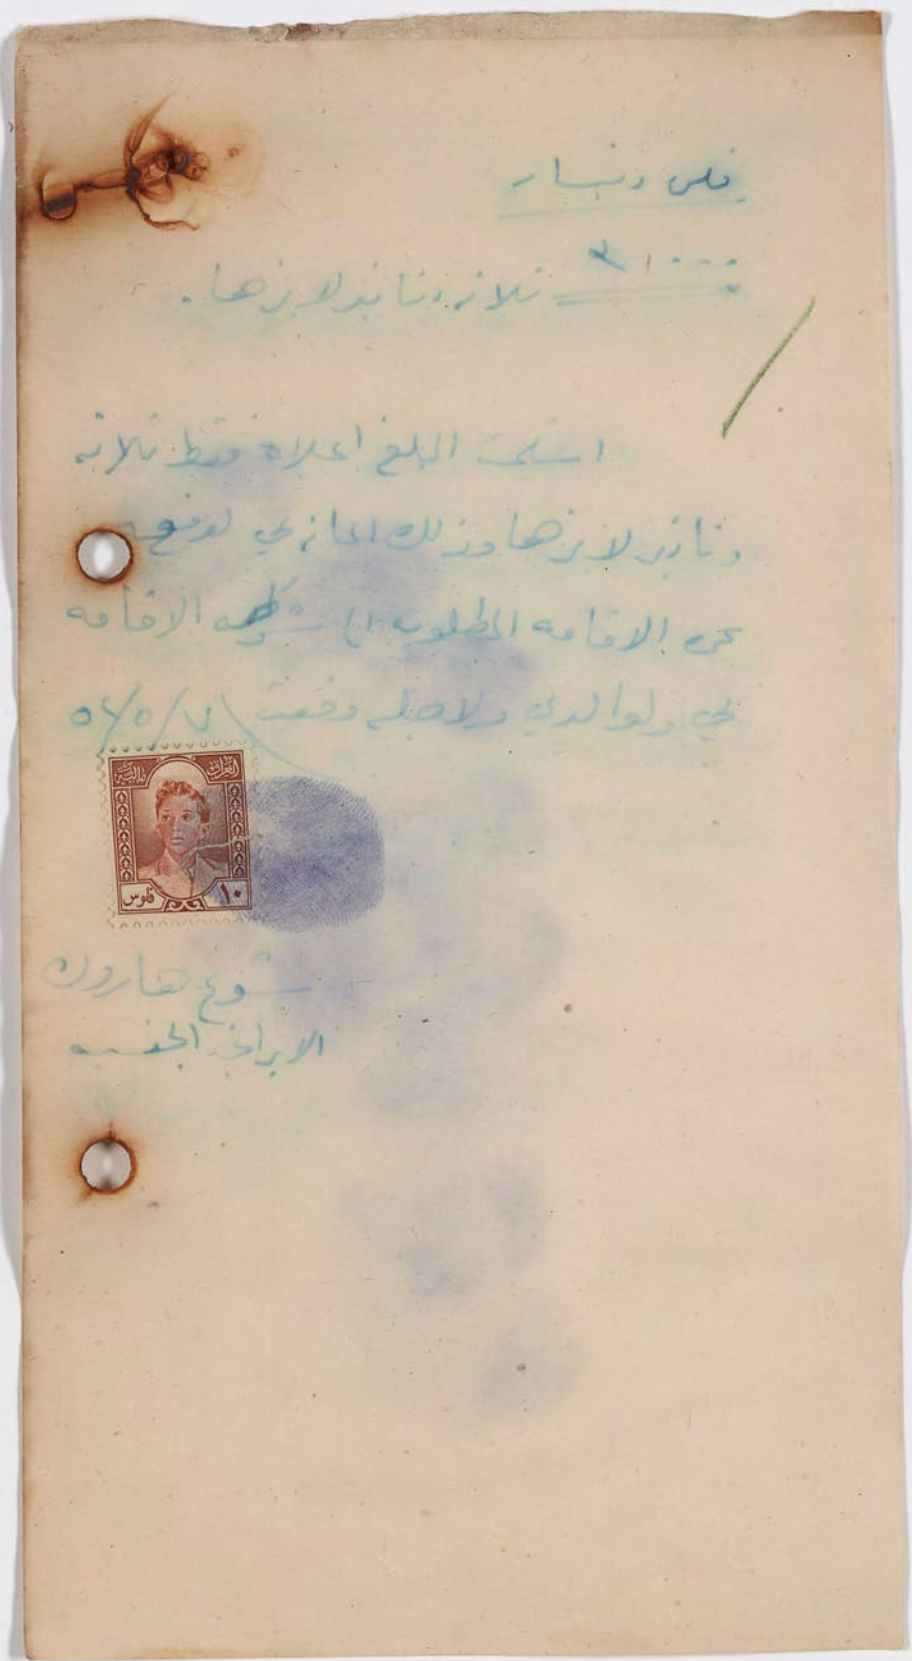 فلس دينار
٣/٠٠٠ ثلاثة دنانير لا غيرها.
استلمت المبلغ اعلاه فقط ثلاثه
دنانير لا غيرها وذلك اعانة لي لدفع
عن الاقامه المطلوبه الاقامه
لي ولوالدي ولاجله وقعت
العراق
١٠ فلوس
هارون
الايراني الجنسيه